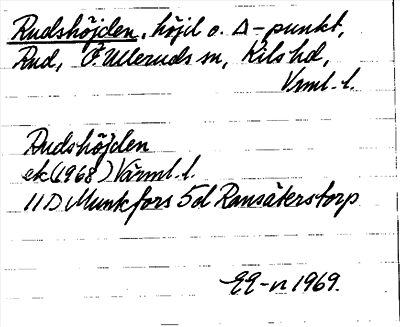 Rudshöjden, höjd o. Δ-punkt,
Rud, Ö Ulleruds sn, Kils hd,
Vrml. l.
Rudshöjden
ek (1968) Värml. l.
11D Munkfors 5d Ransäterstorp
1969.